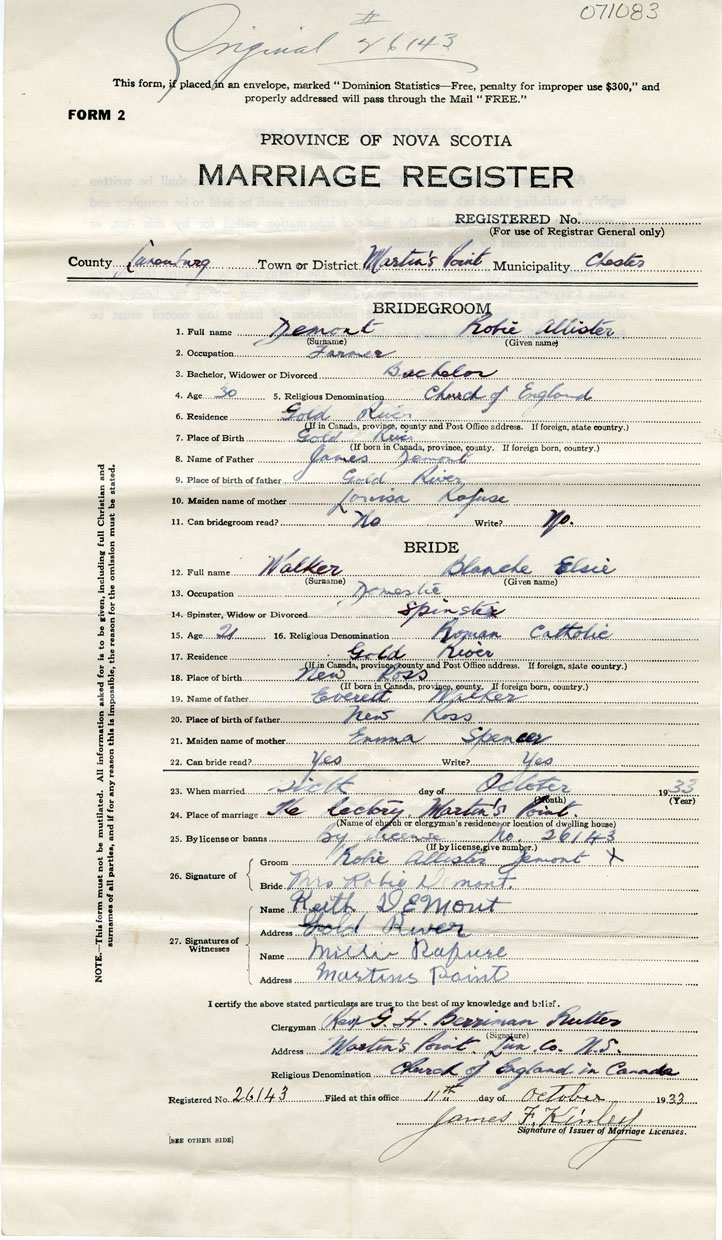 071083
Original # 26143
This form, if placed in an envelope, marked "Dominion Statistics—Free, penalty for improper use $300," and
properly addressed will pass through the Mail "FREE."
FORM 2
PROVINCE OF NOVA SCOTIA
MARRIAGE REGISTER
REGISTERED No.
(For use of Registrar General only)
County Lunenburg Town or District Martin's Point Municipality Chester
BRIDEGROOM
1. Full name Demont Robie Allister
(Surname) (Given name)
2. Occupation Farmer
3. Bachelor, Widower or Divorced Bachelor
4. Age 30 5. Religious Denomination Church of England
6. Residence Gold River
(If in Canada, province, county and Post Office address. If foreign, state country.)
7. Place of Birth Gold River
(If born in Canada, province, county. If foreign born, country.)
8. Name of Father James Demont
9. Place of birth of father Gold River
10. Maiden name of mother Louisa Rafuse
11. Can bridegroom read? No Write? No.
BRIDE
12. Full name Walker Blanche Elsie
(Surname) (Given name)
13. Occupation Domestic
14. Spinster, Widow or Divorced Spinster
15. Age 21 16. Religious Denomination Roman Catholic
17. Residence Gold River
(If in Canada, province, county and Post Office address. If foreign, state country.)
18. Place of birth New Ross
(If born in Canada, province, county. If foreign born, country.)
19. Name of father Everett Walker
20. Place of birth of father New Ross
21. Maiden name of mother Emma Spencer
22. Can bride read? Yes Write? Yes
23. When married Sixth day of October 1933
(Month) (Year)
24. Place of marriage The Rectory, Martin's Point.
(Name of church or clergyman's residence or location of dwelling house)
25. By license or banns by license No. 26143
(If by license, give number.)
26. Signature of
Groom Robie Allister Demont X
Bride Mrs Robie Demont.
27. Signatures of Witnesses
Name Keith DEMont
Address Gold River
Name Millie Rafuse
Address Martins Point
I certify the above stated particulars are true to the best of my knowledge and belief.
Clergyman Rev G. H. Berriman Rutter
(Signature)
Address Martin's Point. Lun. Co. N.S.
Religious Denomination Church of England in Canada
Registered No. 26143 Filed at this office 11th day of October 1933
James F. Kinley
Signature of Issuer of Marriage Licenses.
[SEE OTHER SIDE]
NOTE.—This form must not be mutilated. All information asked for is to be given, including full Christian and
surnames of all parties, and if for any reason this is impossible, the reason for the omission must be stated.